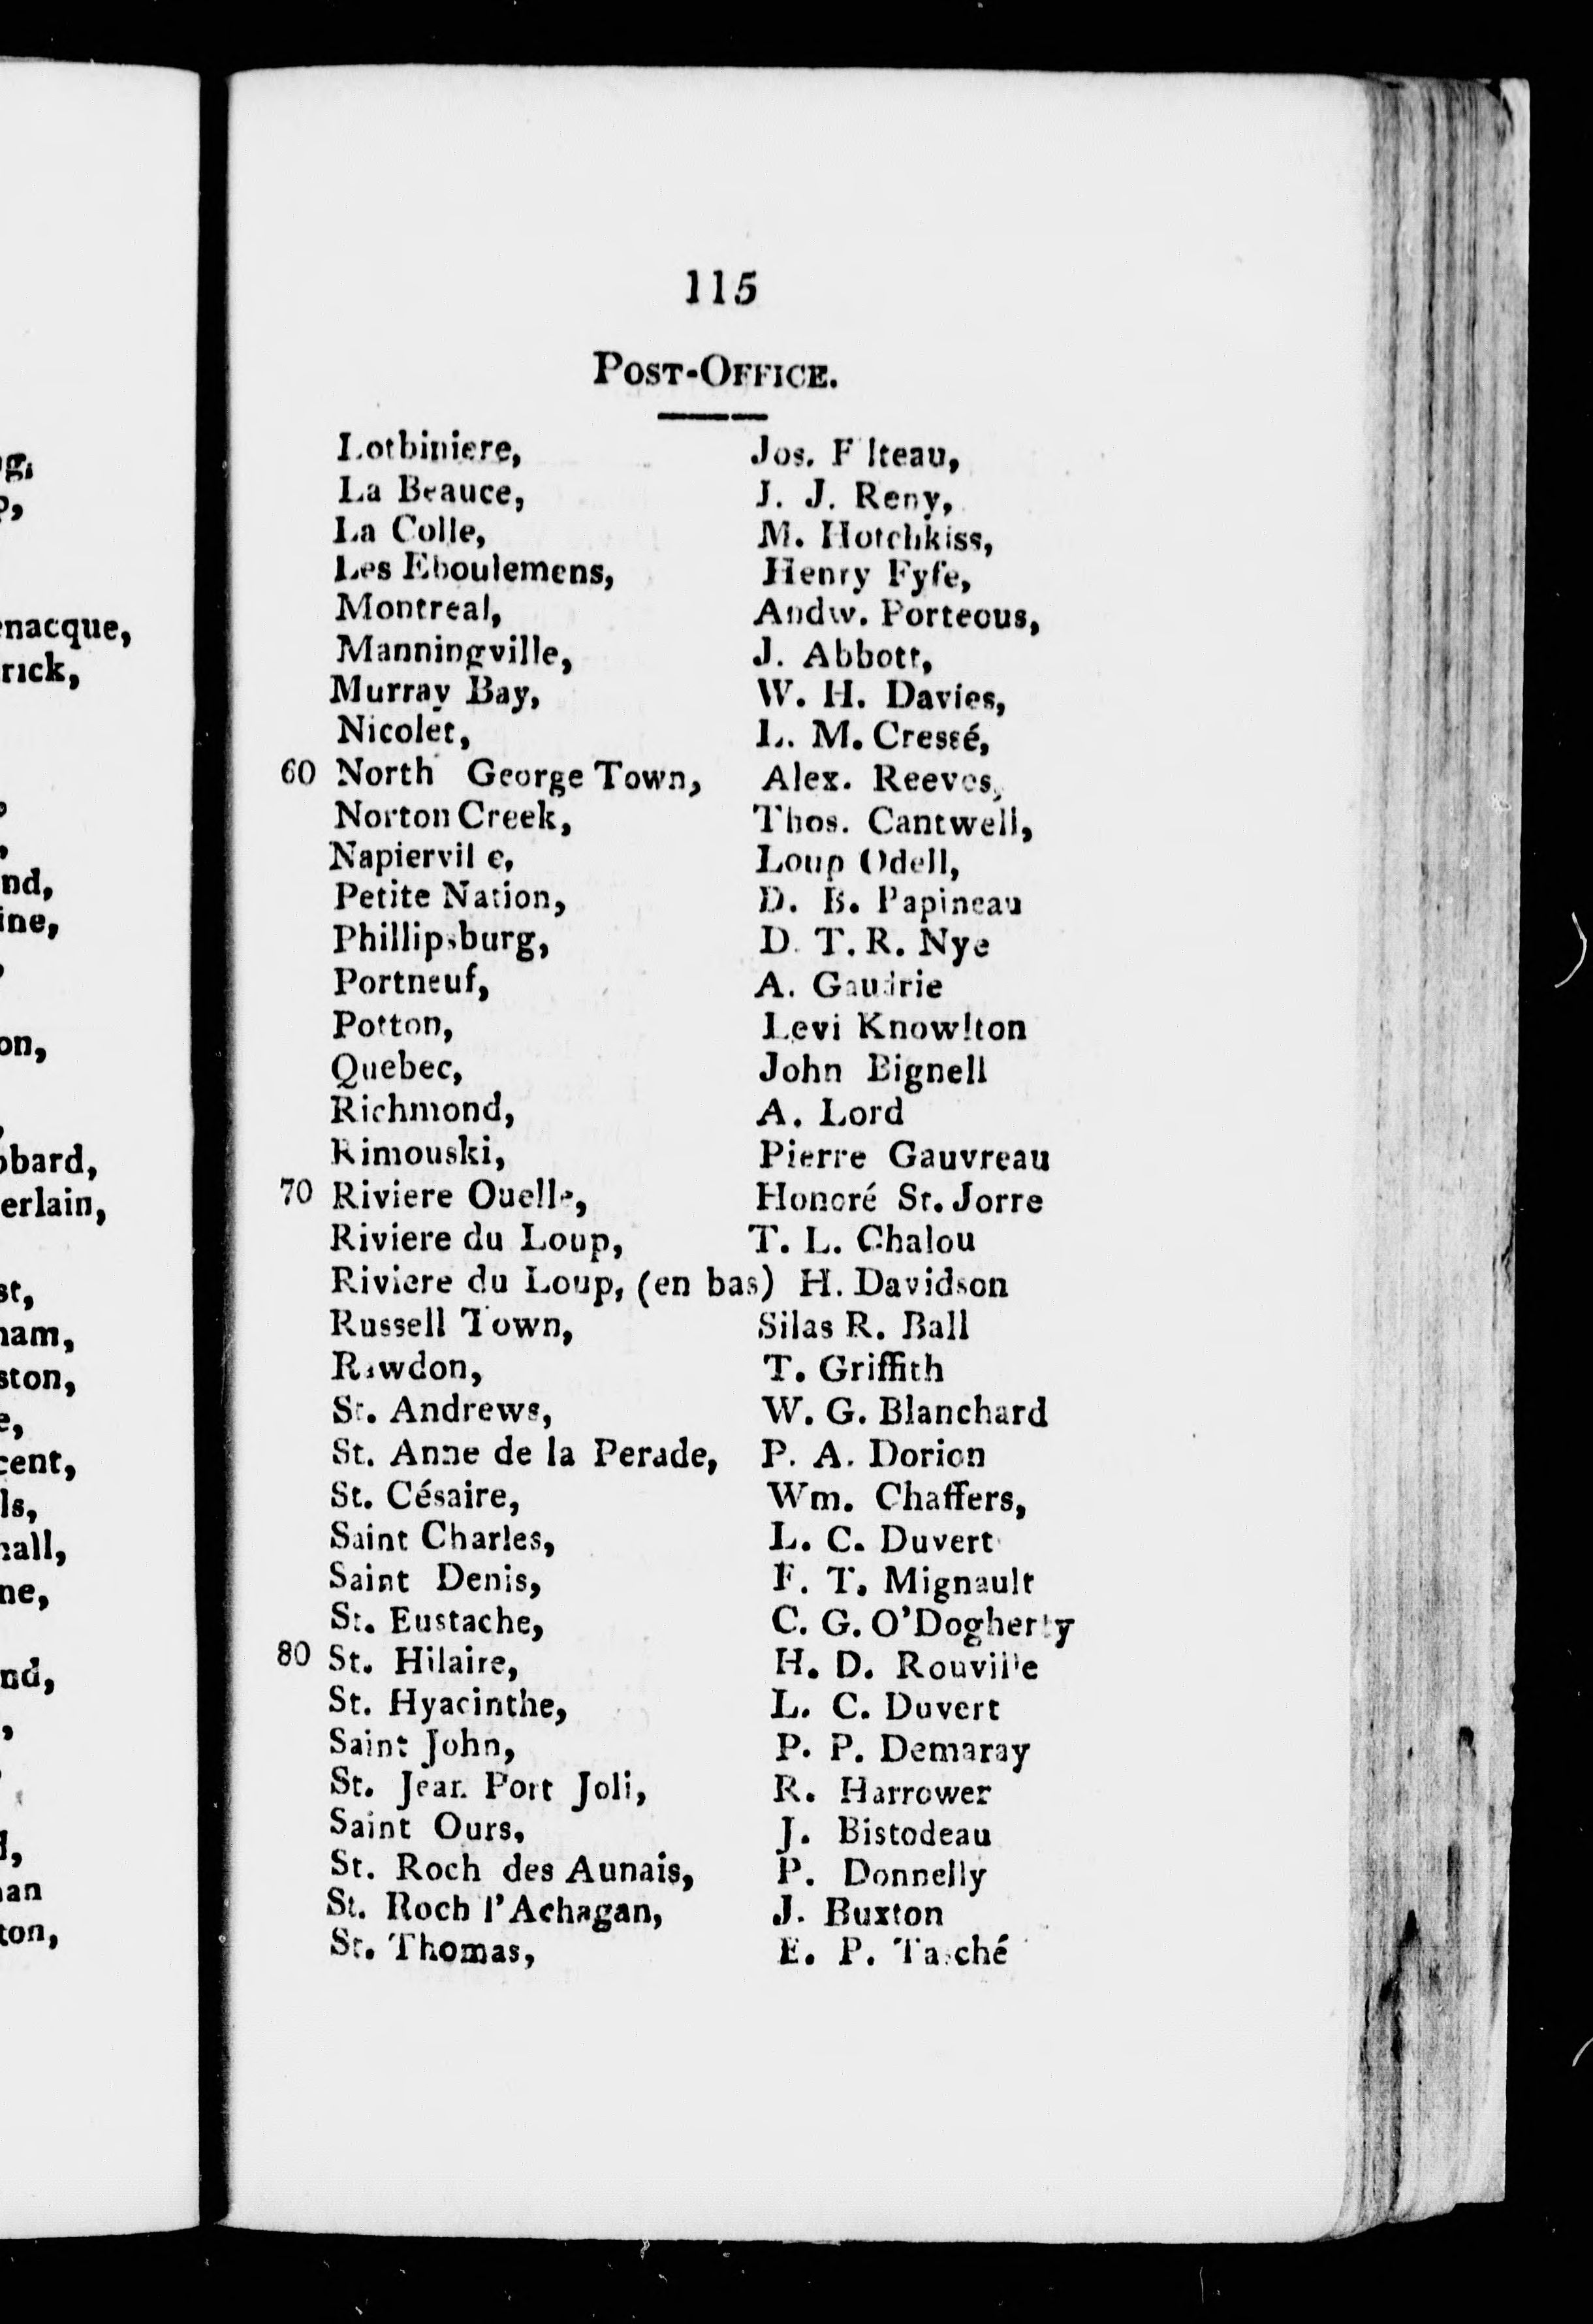 g,
?,
enacque,
rick,
,
,
nd,
ine,
,
on,
,
bbard,
erlain,
st,
ham,
ston,
e,
cent,
ls,
hall,
ne,
nd,
,
l,
an
ton,
115
POST-OFFICE.
Lotbiniere, Jos. F lteau,
La Beauce, J. J. Reny,
La Colle, M. Hotchkiss,
Les Eboulemens, Henry Fyfe,
Montreal, Andw. Porteous,
Manningville, J. Abbott,
Murray Bay, W. H. Davies,
Nicolet, L. M. Cressé,
60 North George Town, Alex. Reeves,
Norton Creek, Thos. Cantwell,
Napiervil e, Loup Odell,
Petite Nation, D. B. Papineau
Phillipsburg, D. T. R. Nye
Portneuf, A. Gaudrie
Potton, Levi Knowlton
Quebec, John Bignell
Richmond, A. Lord
Rimouski, Pierre Gauvreau
70 Riviere Ouelle, Honoré St. Jorre
Riviere du Loup, T. L. Chalou
Riviere du Loup, (en bas) H. Davidson
Russell Town, Silas R. Ball
Rawdon, T. Griffith
St. Andrews, W. G. Blanchard
St. Anne de la Perade, P. A. Dorion
St. Césaire, Wm. Chaffers,
Saint Charles, L. C. Duvert
Saint Denis, F. T. Mignault
St. Eustache, C. G. O'Dogherty
80 St. Hilaire, H. D. Rouville
St. Hyacinthe, L. C. Duvert
Saint John, P. P. Demaray
St. Jean Port Joli, R. Harrower
Saint Ours, J. Bistodeau
St. Roch des Aunais, P. Donnelly
St. Roch l'Achagan, J. Buxton
St. Thomas, E. P. Tasché